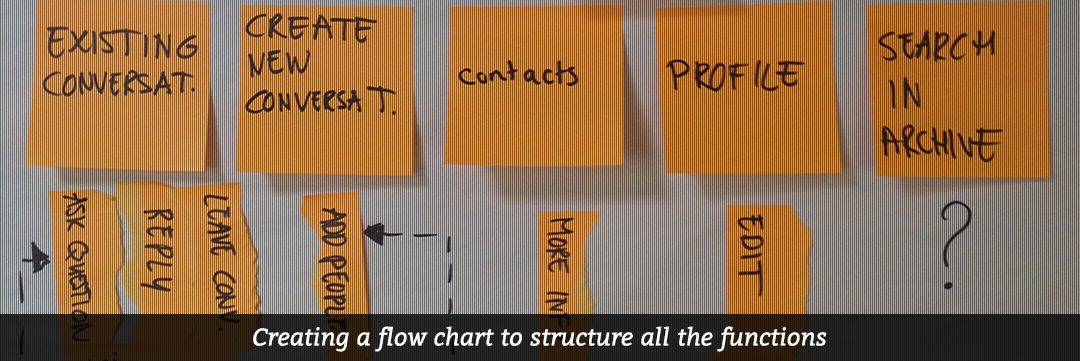 EXISTING
CONVERSAT.
CREATE
NEW
CONVERSAT.
contacts
PROFILE
SEARCH
IN
ARCHIVE
ASK QUESTION
REPLY
LEAVE CONV.
ADD PEOPLE
MORE INF
EDIT
?
Creating a flow chart to structure all the functions